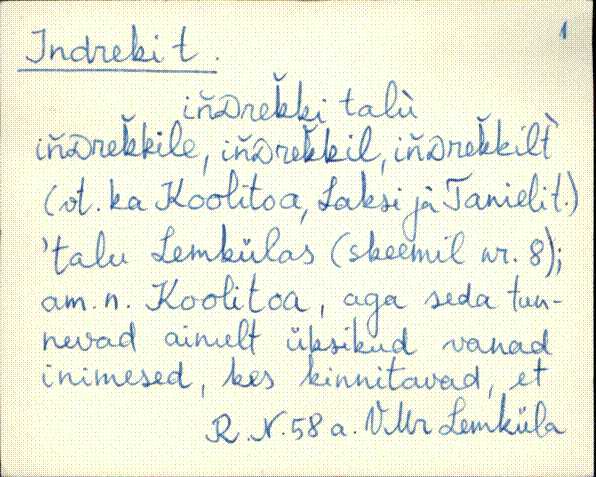 1
Indreki t.
iňDreǩki talù
iňDreǩkile, iňDreǩkil, iňDreǩkilt̀
(vt. ka Koolitoa, Laksi ja Tanielit.)
'talu Lemkülas (skeemil nr. 8);
am. n. Koolitoa, aga seda tun-
nevad ainult üksikud vanad
inimesed, kes kinnitavad, et
R. N. 58 a. VMr Lemküla